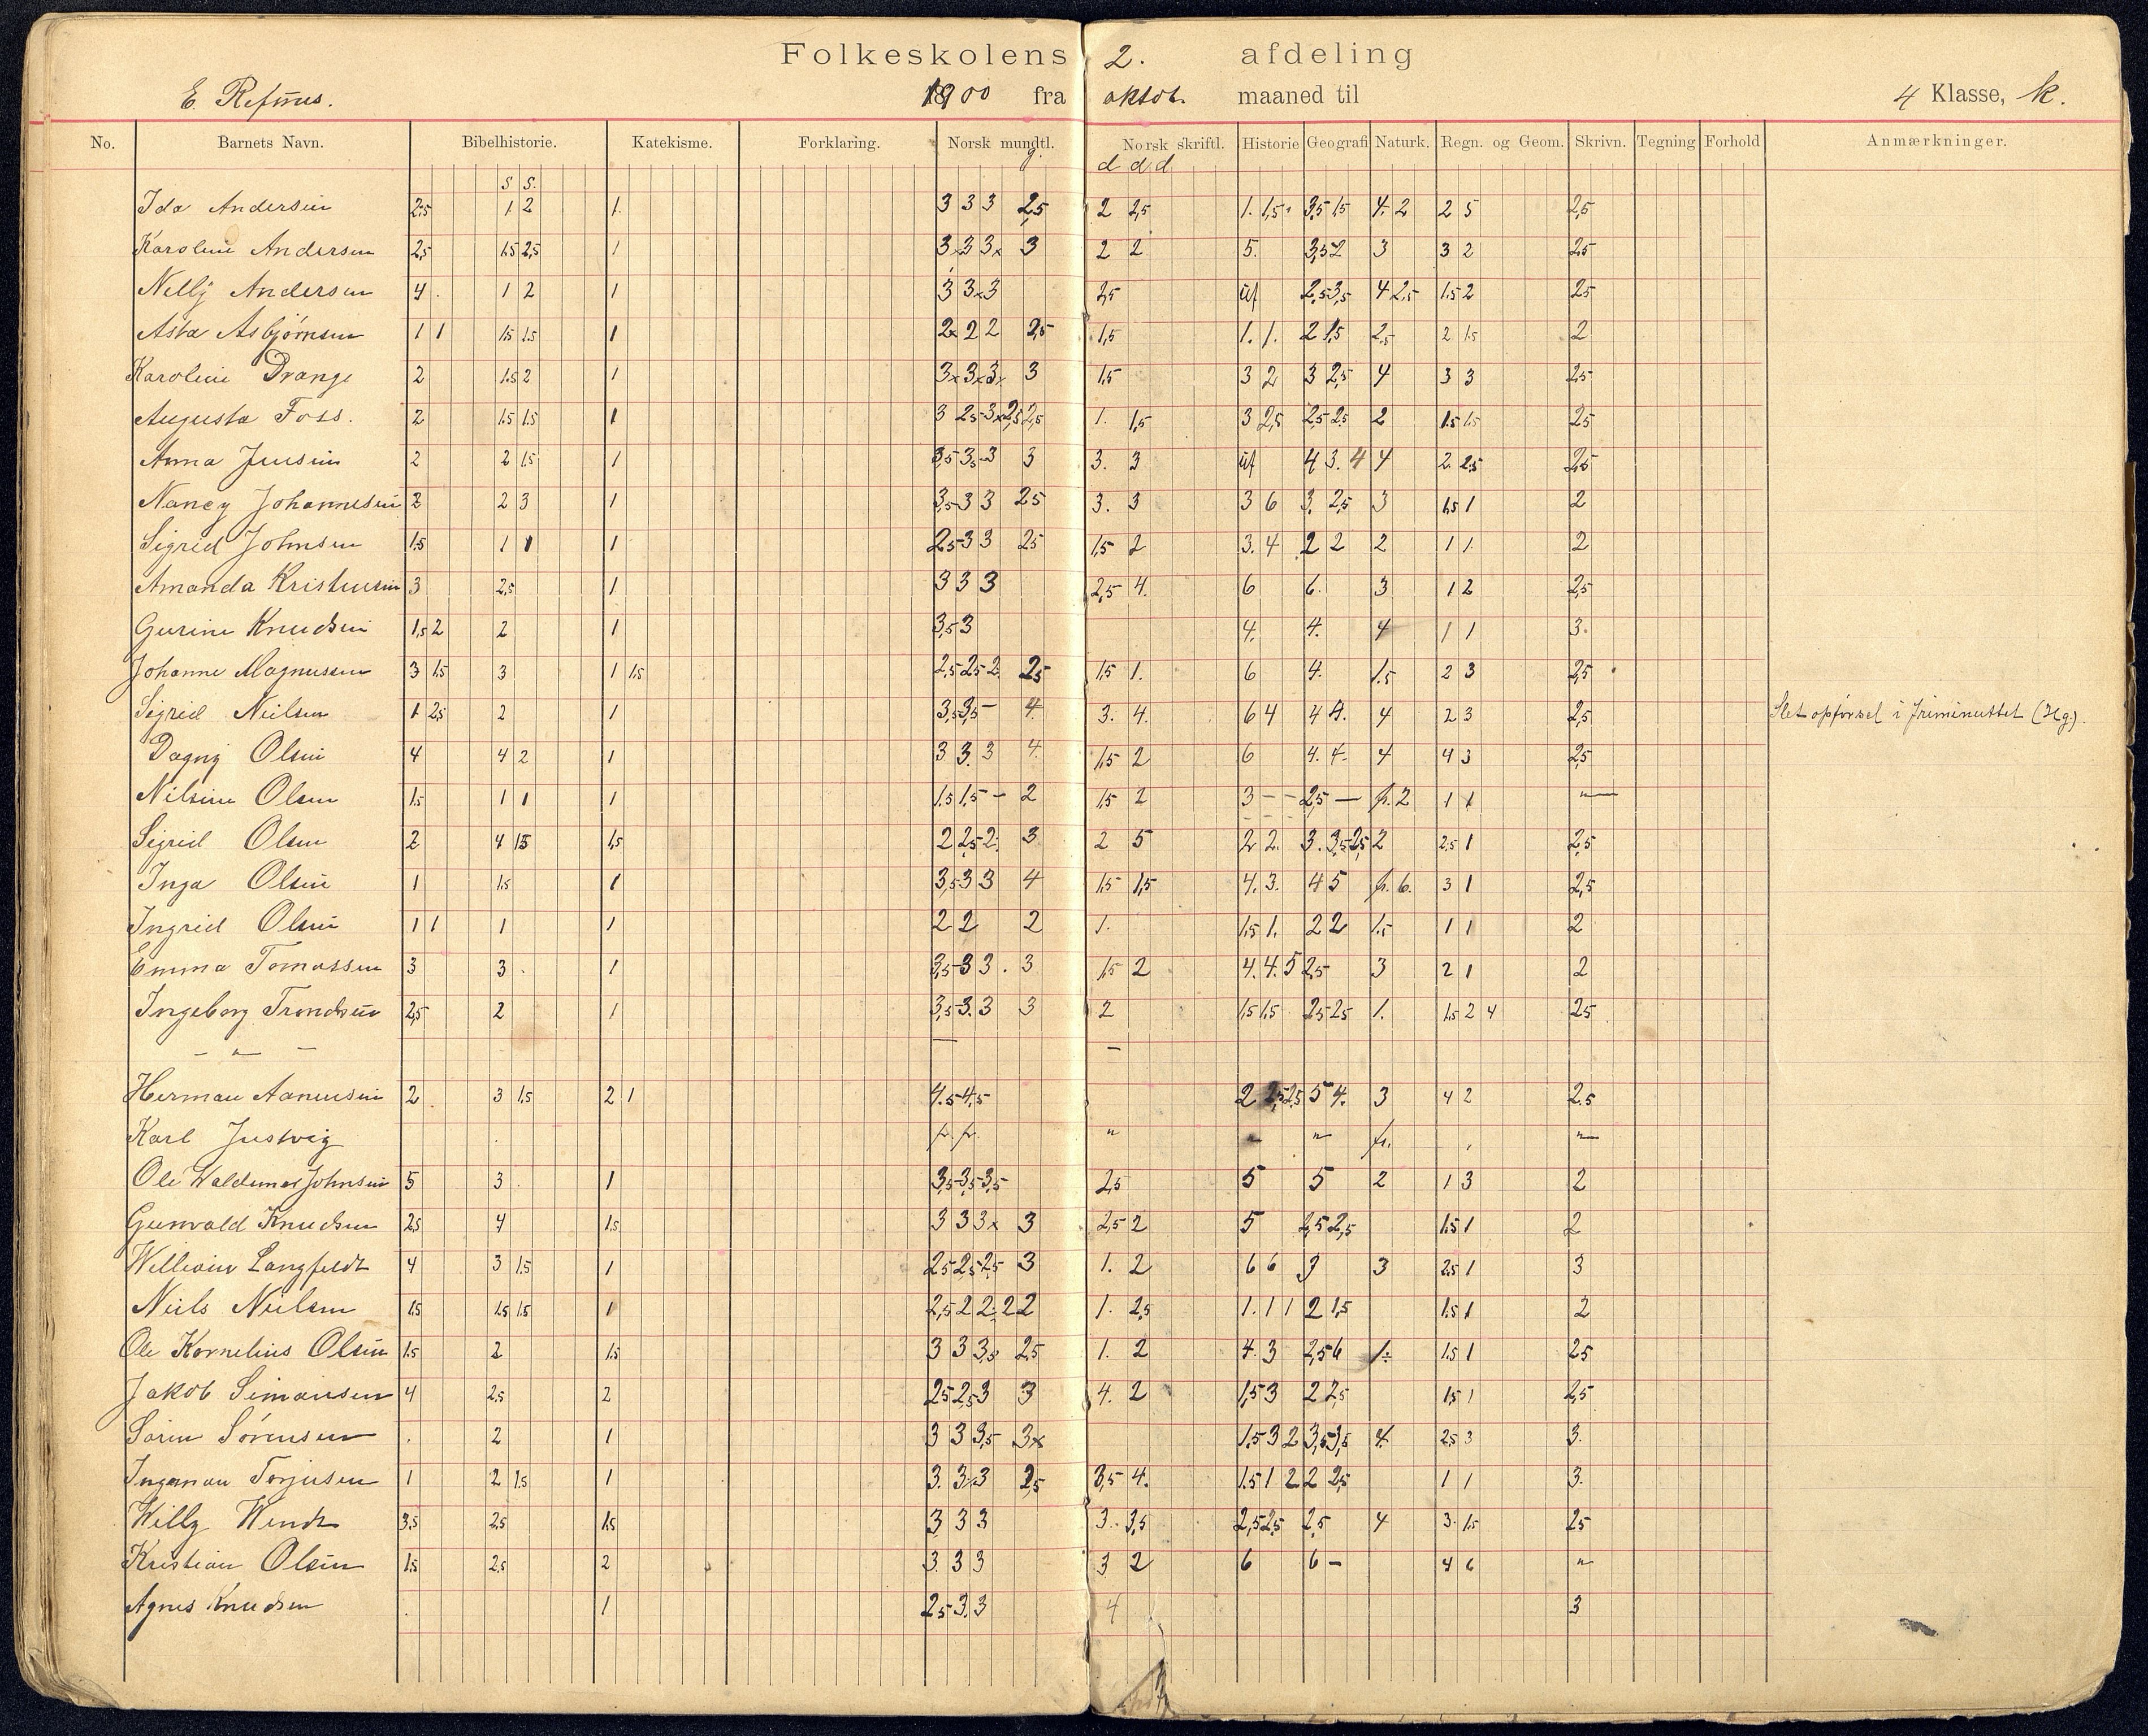 Folkeskolens 2. afdeling
E. Refsnes. 1900 fra oktob. maaned til 4 Klasse, k.
No. Barnets Navn. Bibelhistorie. Katekisme. Forklaring. Norsk mundtl. Norsk skriftl. Historie Geografi Naturk. Regn. og Geom. Skrivn. Tegning Forhold Anmærkninger.
g. d d d
s s.
Ida Andersen 2,5 1. 2 1. 3 3 3 2,5 2 2,5 1. 1,5 3,5 1,5 4. 2 2 5 2,5
Karoline Andersen 2,5 1.5 2,5 1 3x3 3x 3 2 2 5. 3,5 2 3 3 2 2,5
Nelly Andersen 4. 1 2 1 3 3x3 2,5 uf 2,5 3,5 4 2,5 1.5 2 2,5
Asta Asbjörnsen 1 1 1.5 1.5 1 2x 2 2 2,5 1,5 1. 1. 2 1,5 2,5 2 1.5 2
Karoline Drange 2 1.5 2 1 3x3x3x 3 1,5 3 2 3 2,5 4 3 3 2,5
Augusta Foss. 2 1.5 1.5 1 3 2,5 3x 2,5 2,5 1. 1,5 3 2,5 2,5 2,5 2 1.5 1.5 2,5
Anna Jensen 2 2 1.5 1 3,5 3,5 3 3 3. 3 uf 4 3. 4 4 2. 2.5 2,5
Nancy Johannesen 2 2 3 1 3,5 3 3 2,5 3. 3 3 6 3. 2,5 3 1,5 1 2
Sigrid Johnsen 1.5 1 1 1 2,5 3 3 2,5 1,5 2 3. 4 2 2 2 1 1. 2
Amanda Kristensen 3 2,5 1 3 3 3 2,5 4. 6 6. 3 1 2 2,5
Gurine Knudsen 1,5 2 2 1 3,5 3 4. 4. 4 1 1 3.
Johanne Magnussen 3 1.5 3 1 1.5 2,5 2,5 2. 2,5 1,5 1. 6 4. 1.5 2 3 2,5
Sigrid Neilsen 1 2,5 2 1 3,5 3,5 – 4 3. 4. 6 4 4 4. 4 2 3 2,5 Slet opförsel i friminuttet (Hg.).
Dagny Olsen 4 4 2 1 3 3. 3 4. 1,5 2 6 4. 4. 4 4 3 2,5
Nilsine Olsen 1.5 1 1 1 1.5 1,5 – 2 1,5 2 3 – – 2,5 – fr. 2 1 1 "
Sigrid Olsen 2 4 1.5 1,5 2 2,5 2. 3 2 5 2 2. 3. 3,5 2,5 2 2,5 1 2,5
Inga Olsen 1 1.5 1 3,5 3 3 4 1,5 1,5 4. 3. 4 5 fr. 6. 3 1 2,5
Ingrid Olsen 1 1 1 1 2 2 2 1. 1.5 1. 2 2 1.5 1 1 2
Emma Tomassen 3 3. 1 3,5 3 3. 3 1,5 2 4. 4. 5 2,5 3 2 1 2
Ingeborg Trondsen 2,5 2 1 3,5 3. 3 3 2 1,5 1.5 2,5 2,5 1. 1.5 2 4 2,5
– " – — –
Herman Aanensen 2 3 1,5 2 1 4.5 4,5 2 2,5 2,5 5 4. 3 4 2 2.5
Karl Justvig fr. fr. " " " fr. "
Ole Waldemar Johnsen 5 3. 1 3,5 3,5 3,5 2,5 5 5 2 1 3 2
Gunvald Knudsen 2,5 4 1.5 3 3 3x 3 2,5 2 5 2,5 2,5 1.5 1 2
William Langfeldt 4 3 1.5 1 2,5 2,5 2,5 3 1. 2 6 6 3 3 2.5 1 3
Niels Nielsen 1.5 1.5 1.5 1 2,5 2 2. 2 2 1. 2,5 1. 1 1 2 1,5 1.5 1 2
Ole Kornelius Olsen 1.5 2 1.5 3 3 3,5 2,5 1. 2 4. 3 2,5 6 1. 1.5 1 2,5
Jakob Simonsen 4 2,5 2 2,5 2,5 3 3 4. 2 1,5 3 2 2,5 1,5 1 2,5
Sören Sörensen . 2 1 3 3 3,5 3x 1.5 3 2 3,5 3,5 4. 2,5 3 3.
Ingeman Torjusen 1 2 1.5 1 3. 3x3 2,5 3,5 4. 1.5 1 2 2 2,5 1 1 3.
Willy Wendt 3,5 2,5 1.5 3 3 3 3. 3,5 2,5 2,5 2,5 4 3. 1.5 2,5
Kristian Olsen 1.5 2,5 2 3. 3 3 3 2 6 6 – 4 6 "
Agnes Knudsen . 1 2,5 3. 3 4 3